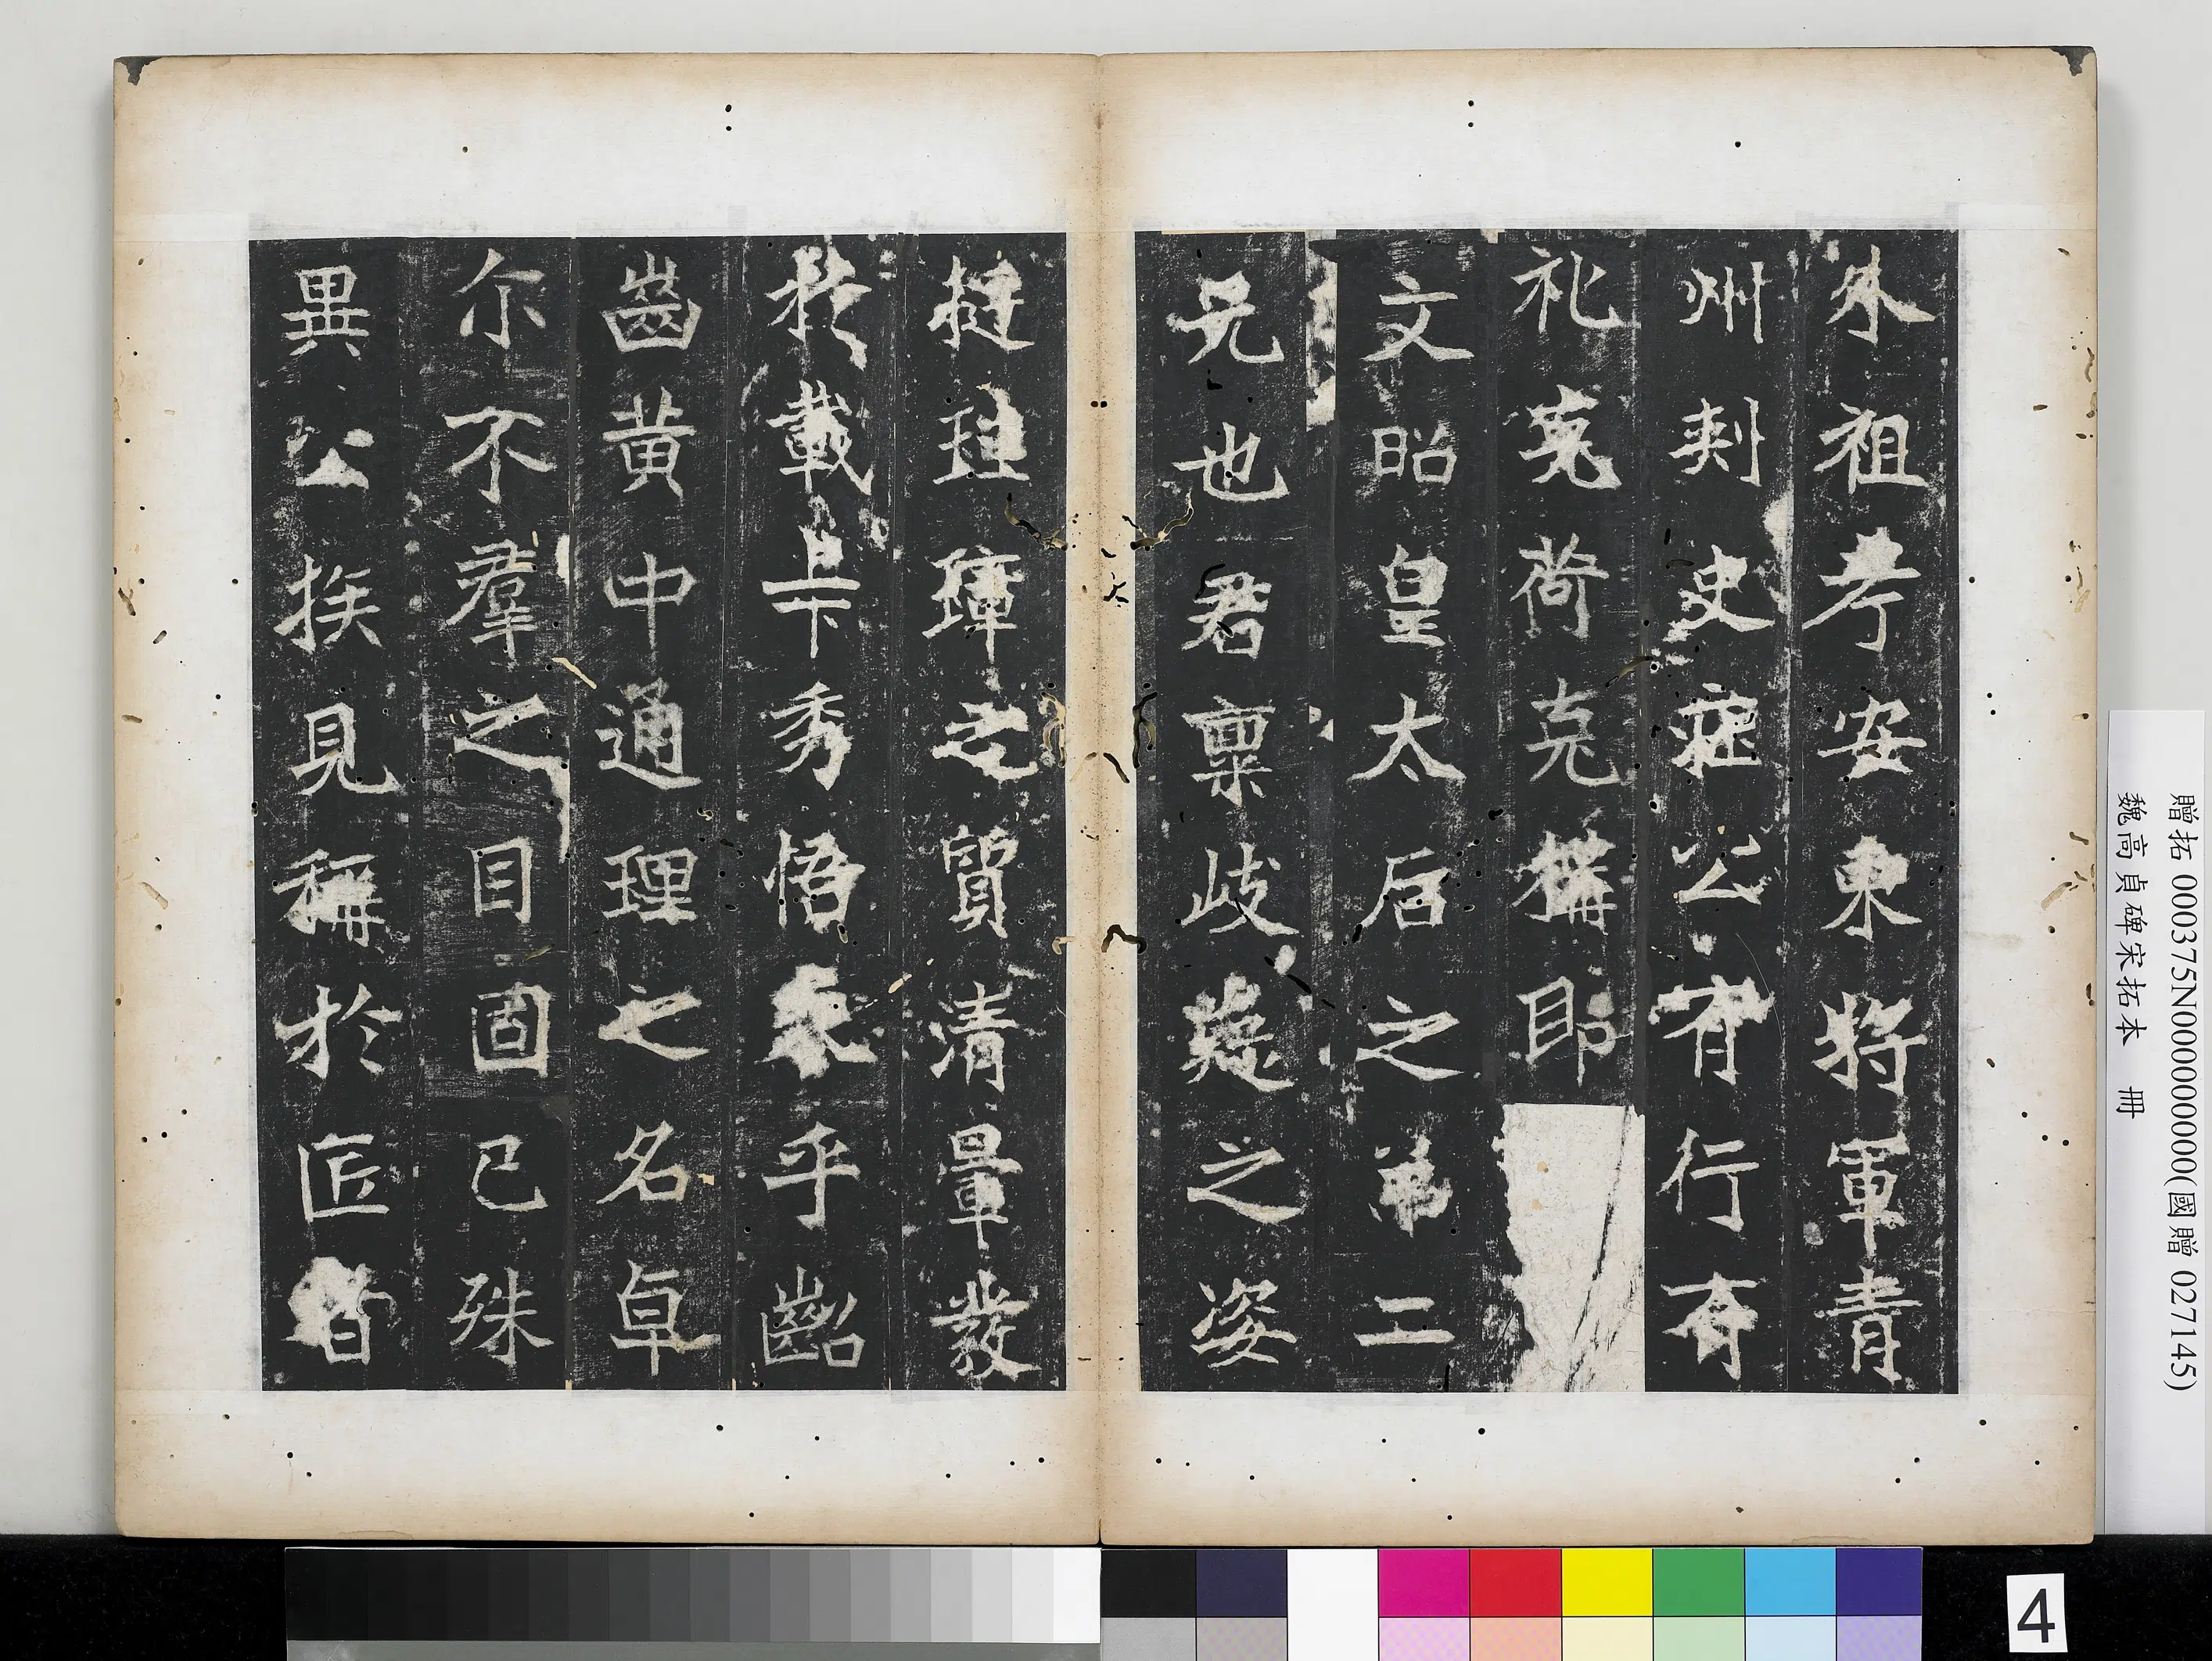 外祖考安東將軍青
州刺史莊公有行有
礼克荷克構即
文昭皇太后之弟二
兄也君稟岐嶷之姿
挺珪璋之質清暈發
於載卡秀悟表乎齠
齒黃中通理之名卓
尒不羣之目固已殊
異公族見稱於匠者
贈拓 000375N000000000(國贈 027145)
魏高貞碑宋拓本 冊
4